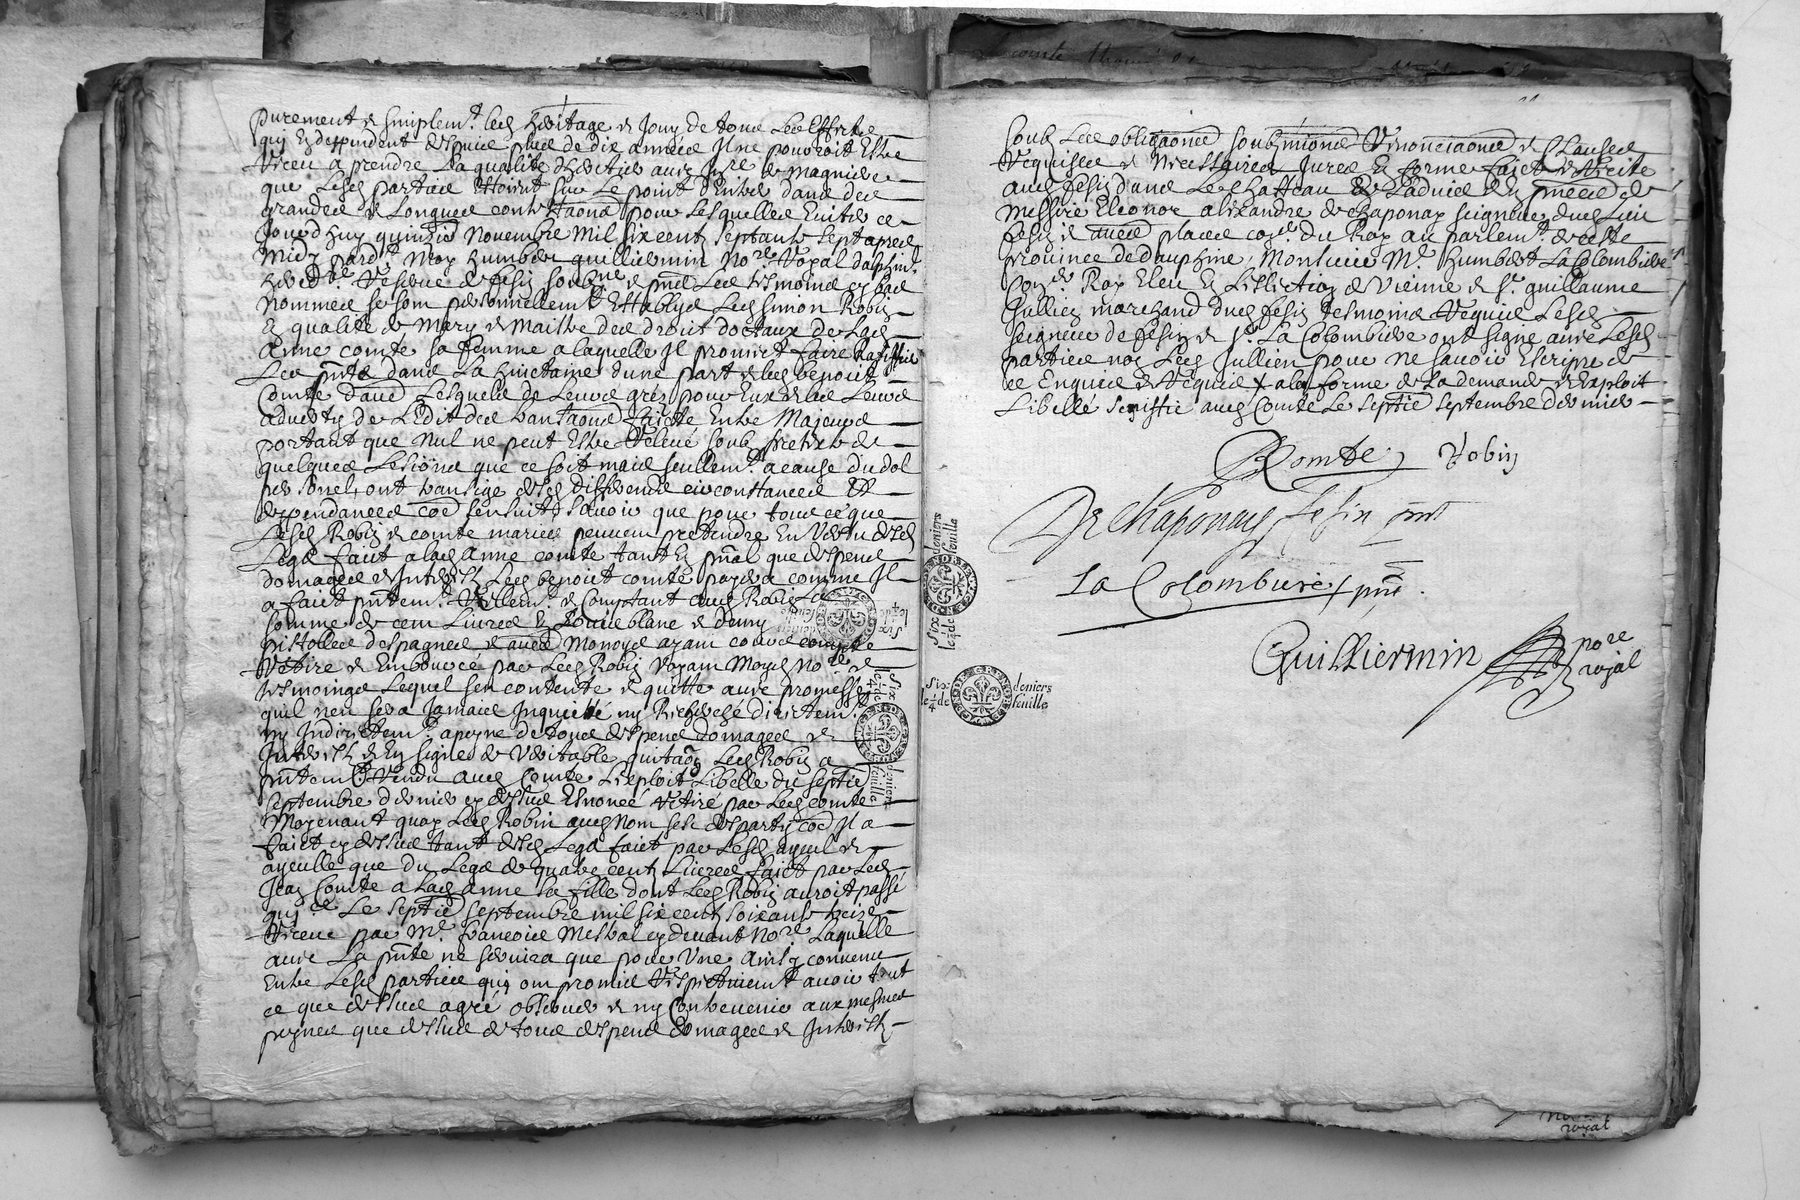 purement & simplemt. led. heritage & jouy de tous les effectz
quj en deppendent despuis plus de dix années Il ne pouvoit estre
receu a prendre la qualité dheritier avec
que lesd. parties estoient sur le point dentrer dans des
grandes & longues contestaons pour lesquelles eviter ce
jourdhuy quinzie novembre mil six cent septante sept apres
midy pardt. moy humbert guilliermin nore. royal
hered.re de fesin soubne. & pnt les tesmoins cy bas
nommes se sont personnellemt. establys led. simon Robin
en qualité de mary & maistre des droit doctaux de lad.
anne comte sa femme a laquelle Il promet faire Ratiffier
les pntes dans la huictaine dune part & led. benoict
Comte dautre Lesquels de leurs grés pour eux & les leurs
advertis de lédit des transaons faicte entre majeurs
portant que nul ne peut estre relevé soub pretexte de
quelques lesions que ce soit mais seullemt. a cause du dol
personel, ont transigé desd. differends circonstances &
deppendances coe sensuit scavoir que pour tout ce que
lesd. Robin & comte maries peuvent pretendre en vertu desd.
Legs faict a lad. anne comte tant en pnal que despens
domages & Interestz led. benoict comte payera comme Il
a faict pntemt. réellemt. & Comptant aud. Robin la
somme de cent livres en Louis blanc & demy
pistolles despagnes & autres monoye ayant cours compté
retiré & emboursé par led. Robin voyant moyd. nore. &
tesmoings lequel sen contente & quitte avec promesse
quil nen sera jamais Inquietté ny Recherché directemt.
ny Indirectemt. a peyne de tous despens domages &
Interestz & en signe de veritable quittaon led. Robin a
pntemt. rendu aud. Comte l'exploit libellé du septie
septembre dernier cy dessus esnoncé retiré par led. comte
Moyenant quoy led. Robin aud. nom sest desparty coe Il a
faict cy dessus tant desd. Legs faict par lesd. ayeul &
ayeulle que du Legs de quatre cent Livres faict par led.
Jean Comte a lad. anne sa fille dont led. Robin auroit passé
quice. Le septie septembre mil six cent soixante treize
receue par Me. francois Mestral cy devant nore. laquelle
avec la pnte ne servira que pour une ainsi convenu
entre lesd. parties quj ont promis respectivemt. avoir tout
ce que dessus agré observer & ny contrevenir aux mesmes
peynes que dessus de tous despens domages & Interestz
soub les obligaons soubmissions renonciaons & clauses
requises & necessaires Jures en forme faict & recité
aud. fesin dans le chatteau de ladvis & en pnces de
messire Eleonor alexandre de chaponay seigneur dud. lieu
fesin & autres places coner. du Roy au parlemt. de ceste
province de dauphiné, Monsieur Me. humbert La Colombiere
coner. Roy Eleu en Lellection de Vienne & sr. guillaume
Jullien marchand dud. fesin tesmoins requis lesd.
seigneur de fesin & sr. La Colombiere ont signé avec lesd.
parties non led. Jullien pour ne scavoir escripre de
ce enquis & requis + a la forme de la demande & exploit
Libellé signiffié aud. Comte le septie septembre dernier
B Comte Robin
De chaponay fesin pnt
La Colombiere pnt.
Guilliermin nore
royal
six deniers
le 1/4 de feuille
six deniers
le 1/4 de feuille
six deniers
le 1/4 de feuille
six deniers
le 1/4 de feuille
royal